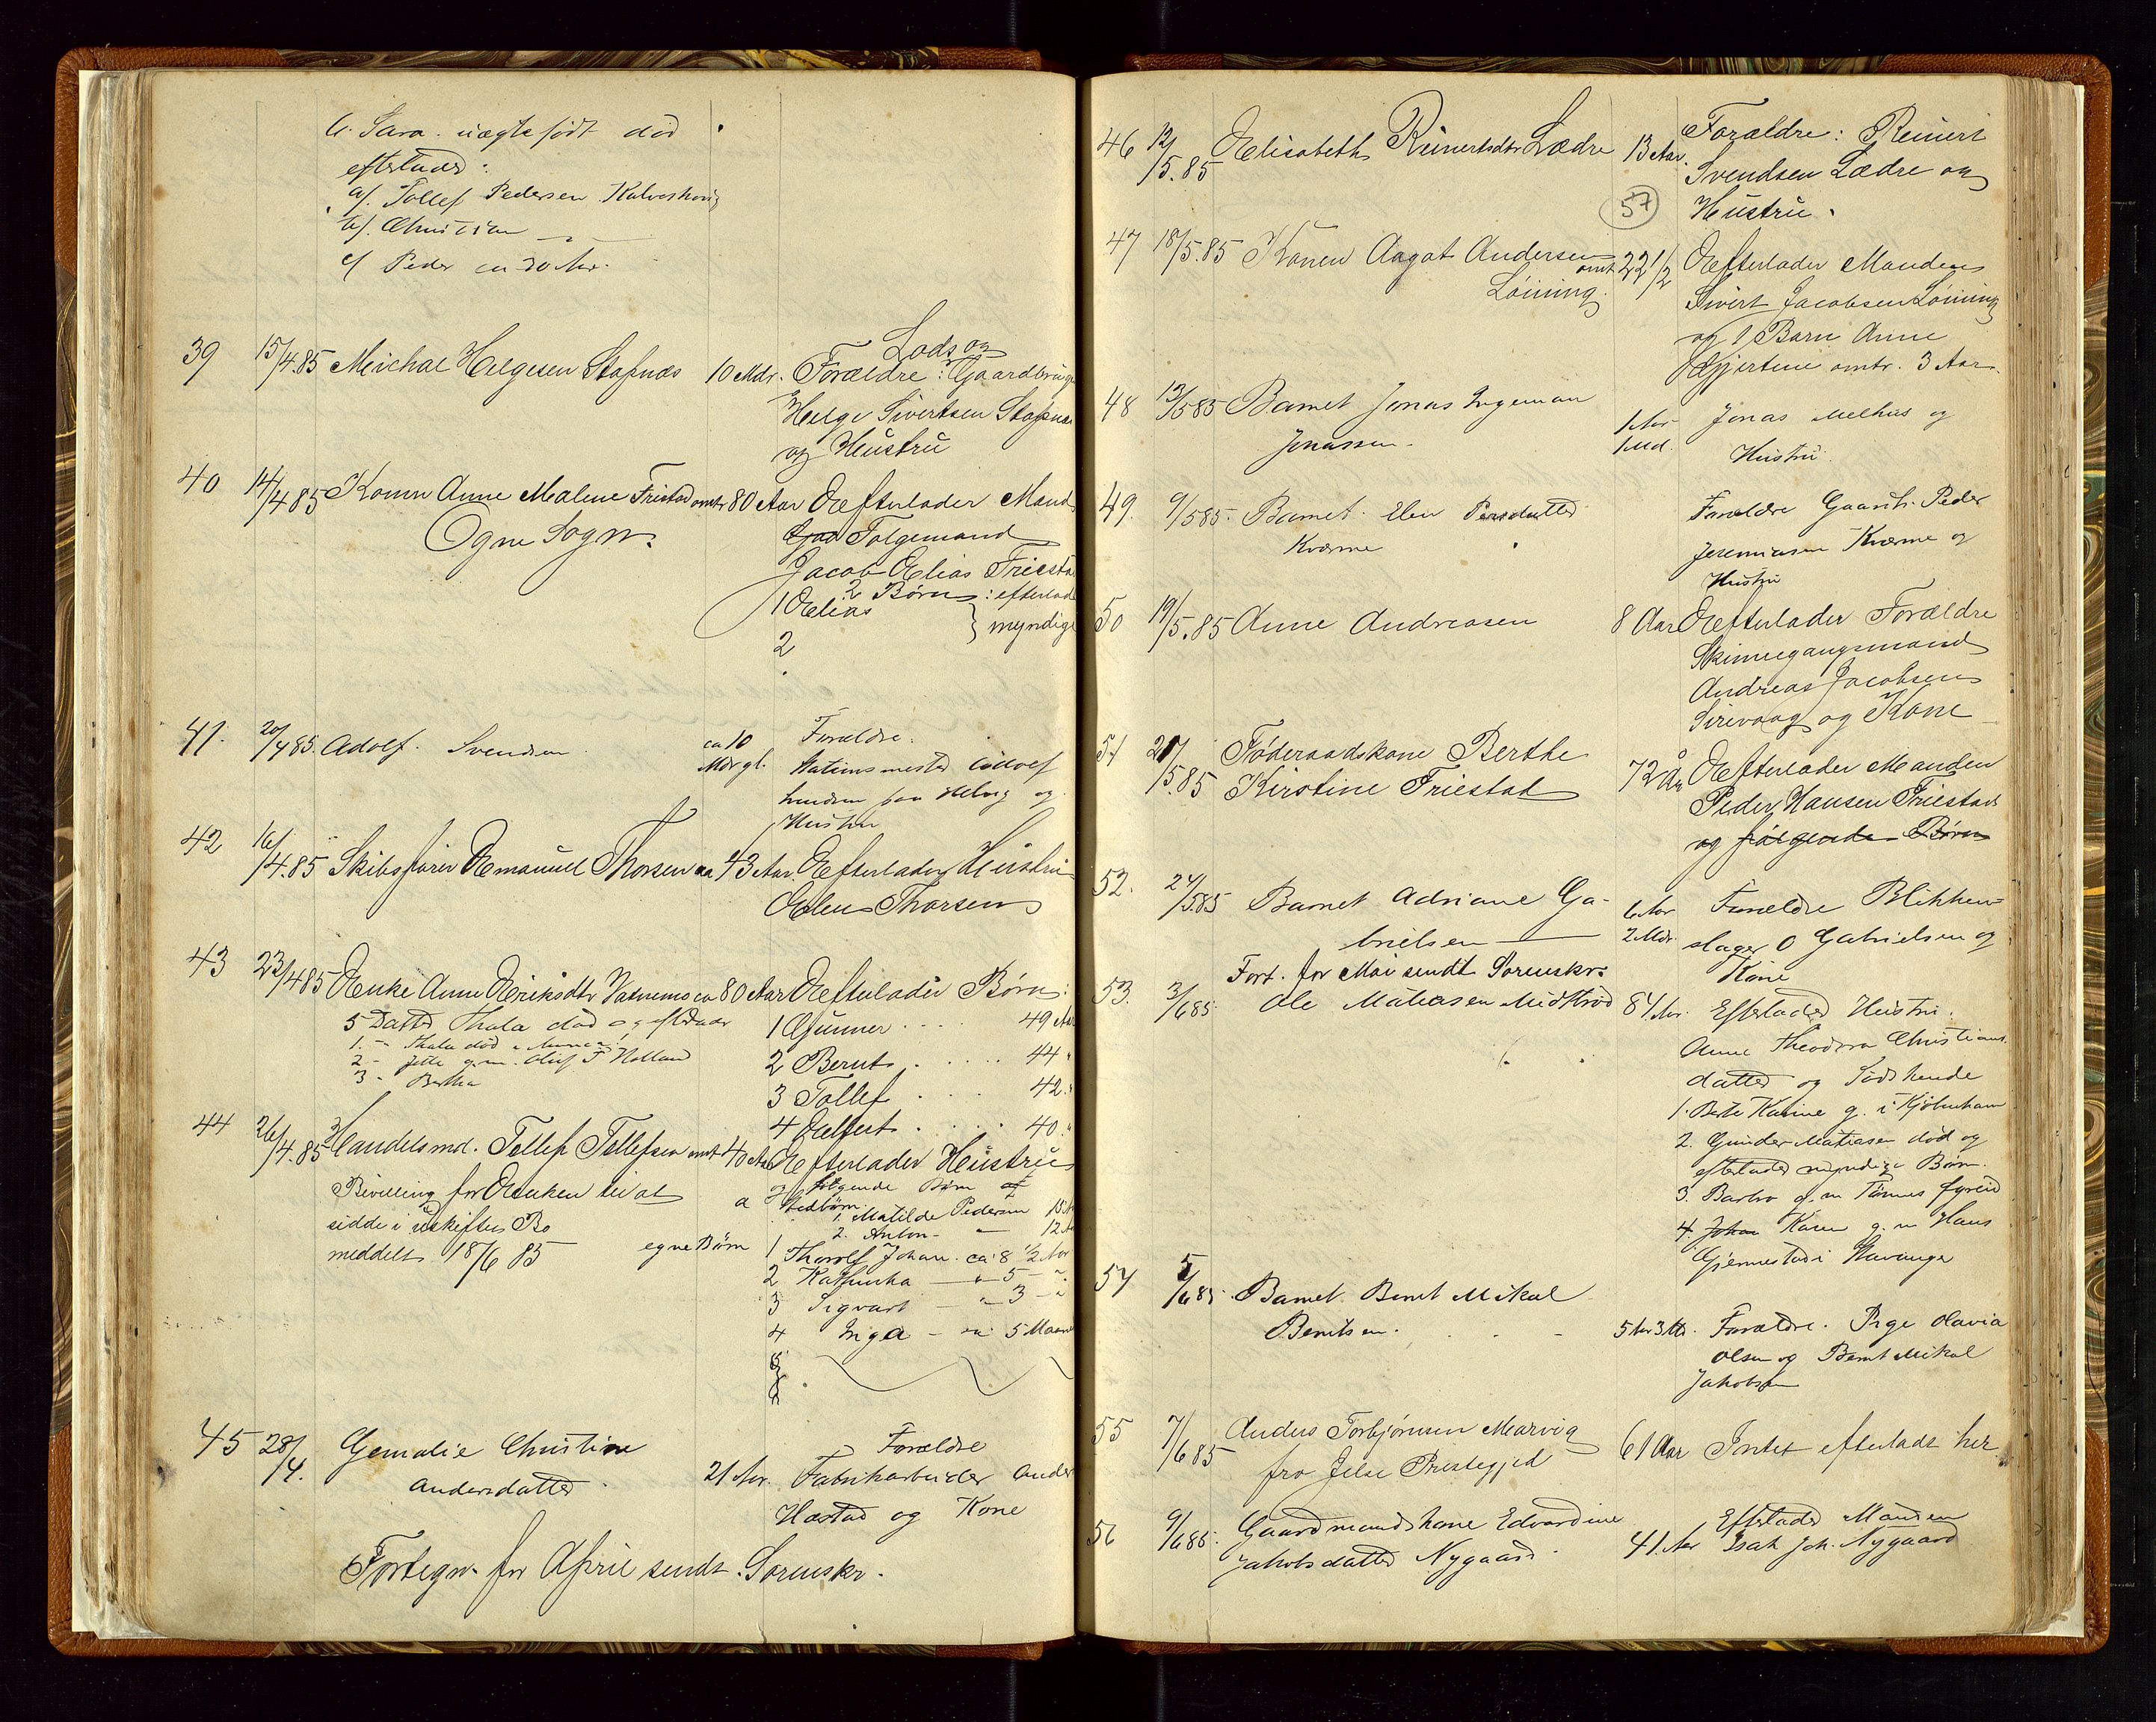 6. Sara. uægte født død
efterlader:
a/. Tollef Pedersen Kalveshovig
b/. Christian —
c/ Peder ca 30 Aar.
39 15/4.85 Meichal Helgesen Stapnæs 10 Mdr. Forældre: Lods og Gaardbruger
Helge Sivertsen Stapnæs
og Hustru
40 14/4 85 Konen Anne Malene Fristad omtr 80 Aar Efterlader Mand
Ogne Sogn. Folgemand
Jacob Elias Friestad
2 Børn: efterlad
1 Elias } myndige
2
41. 20/4 85. Adolf Svendsen ca 10 Mdr gl. Forældre:
Stationsmester
paa og
Hustru
42 16/4.85 Skibsfører Emanuel Thorsen ca 43 Aar. Efterlader Hustru
Elen Thorsen
43 23/4 85 Enke Anne Eriksdtr Vatnemo ca 80 Aar Efterlader Børn:
5 Datter Thala død og eftlader 1 Gunner . . . . 49 Aar
1. - Thala død
2 - Jette g.m. Oluf T Holland 2 Bernt . . . . . 44 "
3 - Bertha 3 Tollef . . . . 42 "
4 . . . . . 40 "
44 26/4.85 Handelsmd. Tollef Tollefsen omt 40 Aar Efterlader Hustru
Bevilling for Enken til at a følgende Børn af
sidde i uskiftet Bo Stedbørn. 1. Matilde Pedersen 15 Aar
2. Anton - " 12 Aar
meddelt 18/6 85 egne Børn 1 Thorolf Johan ca 8 1/2 Aar
2 Kathinka — " 5 - "
3 Sigvart — " 3 - "
4 Inga - ca 5 Maan
45 28/4. Gemalie Christine Forældre
Andersdatter 21 Aar. Fabrikarbeider Ander
Hæstad og Kone
Fortegn. for April sendt Sorenskr.
46 12/5.85 Elisabeth Reinertsdtr Lædre 13 Aar. Forældre: Reinert
Svendsen Lædre og
57 Hustru.
47 18/5.85 Konen Aagot Andersen omt 22 1/2 Efterlader Manden
Løining. Sivert Jacobsen Løining
og 1 Barn Anne
Gjertine omtr. 3 Aar
48 13/5 85 Barnet Jonas Ingeman 1 Aar Jonas Melhus og
Jonassen. 1 Md. Hustru.
49. 9/5 85. Barnet Elen Pedersdatter Forældre Gaardb. Peder
Kværme Jeremiasen Kværme og
Hustru
50 19/5.85 Anne Andreasen 8 Aar Efterlader Forældre
Skinnegangsmand
Andreas Jacobsen
Sirevaag og Kone
51 21/5.85 Føderaadskone Berthe 72 Aar Efterlader Manden
Kirstine Friestad Peder Hansen Friestad
og følgende Børn
52. 24/5.85 Barnet Adriane Ga- 6 Aar Forældre Blikken-
brielsen — 2 Mdr. slager O Gabrielsen og
Kone
Fort. for Mai sendt Sorenskr.
53. 3/6 85. Ole Matiasen Midtbrød 84 Aar. Efterlader Hustru.
Anne Theodora Christians-
datter og Sødskende
1. Berte Karine g. i Kjøbenhavn
2. Gunder Matiasen død og
efterlader myndige Børn.
3. Barbro g. m Tønnes
4. Johan Karen g. m Hans
Gjermestad i Stavanger
54 5/6 85. Barnet Bernt Mikal
Berntsen. 5 Aar 3 Md. Forældre. Pige Olavia
Olsen og Bernt Mikal
Jakobsen
55 7/6 85 Anders Torbjørnsen Marvig 61 Aar Intet efterladt her
fra Jelse Prestegjeld
56 9/6 85. Gaardmandskone Edvardine Efterlader Manden
Jakobsdatter Nygaard. 41. Aar Isak Joh. Nygaard